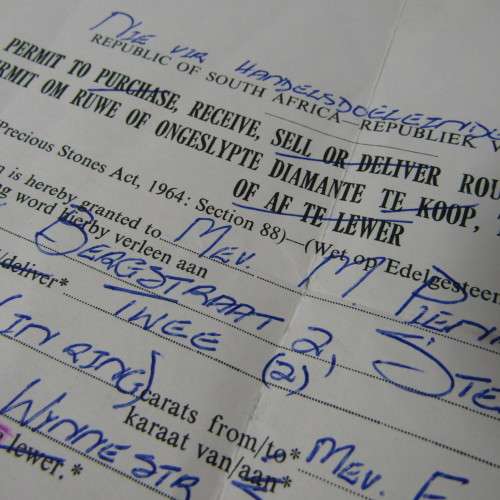 NIE VIR HANDELSDOELEINDE
REPUBLIC OF SOUTH AFRICA—REPUBLIEK V
PERMIT TO PURCHASE, RECEIVE, SELL OR DELIVER ROU
RMIT OM RUWE OF ONGESLYPTE DIAMANTE TE KOOP,
OF AF TE LEWER
Precious Stones Act, 1964: Section 88)—(Wet op Edelgesteen
n is hereby granted to MEV. M. PIEN
ng word hierby verleen aan
BERGSTRAAT 2, STE
/deliver* TWEE (2)
(IN RING) carats from/to* MEV. E
karaat van/aan*
WYNNE STR
lewer.*